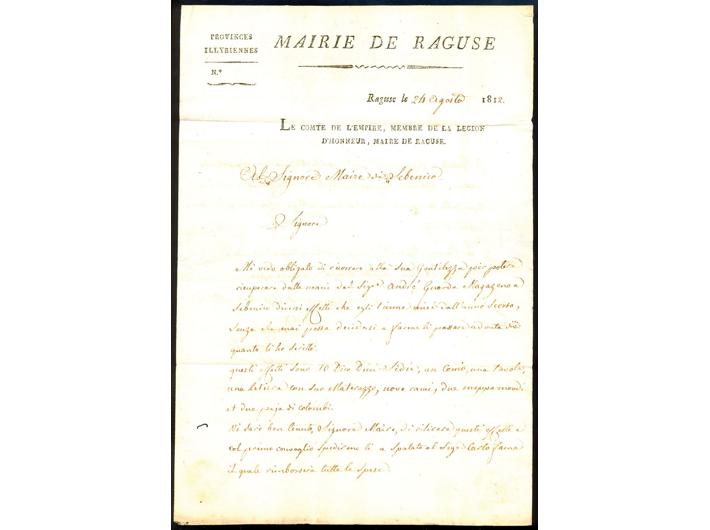 PROVINCES
ILLYRIENNES
N.º
MAIRIE DE RAGUSE
Raguse le 24 Agosto 1812.
LE COMTE DE L'EMPIRE, MEMBRE DE LA LEGION
D'HONNEUR, MAIRE DE RAGUSE.
Al Signore Maire di Sebenico
Signore
Mi vedo obligato di ricorrere alla sua Gentilezza per poter
ricuperare dalle mani del Sigr André Guarda Magazeno a
Sebenico diversi effetti che egli tiene miei dall'anno scorso,
senza che mai possa decidersi a farmeli passare ad onta di
quanto li ho scritto.
questi effetti sono 10 Dieci Sedie, un Comò, una tavola,
una letiera con suo Materazzo, nove rami, due
et due paja di colombi.
Vi sarò ben tenuto, Signore Maire, di ritirare questi effetti e
col primo convoglio spedirmeli a Spalato al Sigr Carlo
il quale rimborserà tutte le spese